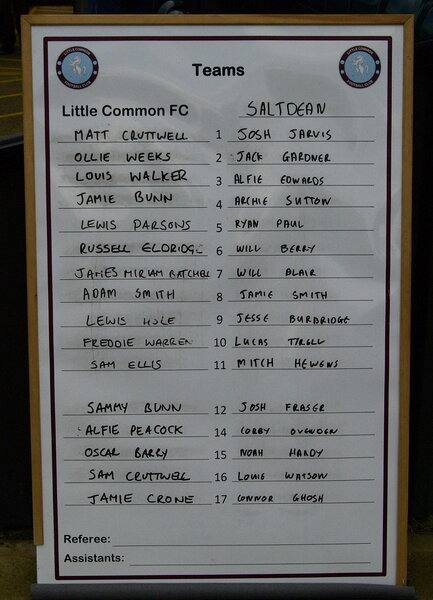 LITTLE COMMON FOOTBALL CLUB
LITTLE COMMON FOOTBALL CLUB
Teams
Little Common FC SALTDEAN
MATT CRUTTWELL 1 JOSH JARVIS
OLLIE WEEKS 2 JACK GARDNER
LOUIS WALKER 3 ALFIE EDWARDS
JAMIE BUNN 4 ARCHIE SUTTON
LEWIS PARSONS 5 RYAN PAUL
RUSSELL ELDRIDGE 6 WILL BERRY
JAMES MIRIAM BATCHELL 7 WILL BLAIR
ADAM SMITH 8 JAMIE SMITH
LEWIS HOLE 9 JESSE BURBRIDGE
FREDDIE WARREN 10 LUCAS TYRELL
SAM ELLIS 11 MITCH HEWENS
SAMMY BUNN 12 JOSH FRASER
ALFIE PEACOCK 14 CORBY
OSCAR BARRY 15 NOAH HANDY
SAM CRUTTWELL 16 LOUIE WATSON
JAMIE CRONE 17 CONNOR GHOSH
Referee:
Assistants: